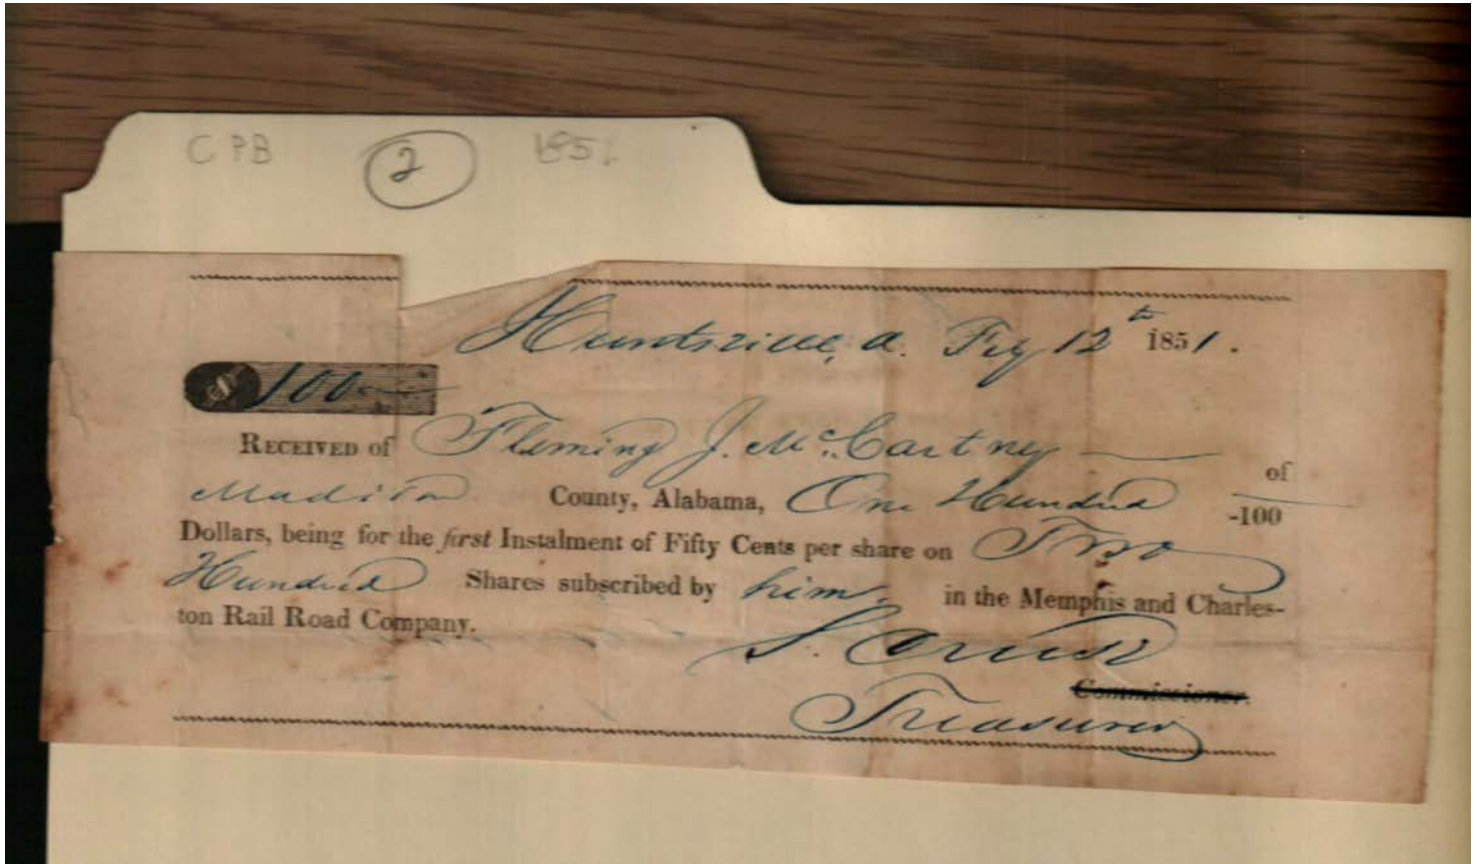 CPB 2 1851
Huntsville, a. Fey 12th 1851.
100
RECEIVED of Fleming J. McCartney of
Madison County, Alabama, One Hundred -100
Dollars, being for the first Instalment of Fifty Cents per share on Two
Hundred Shares subscribed by him. in the Memphis and Charles-
ton Rail Road Company.
S. Cruse
Commissioner.
Treasurer